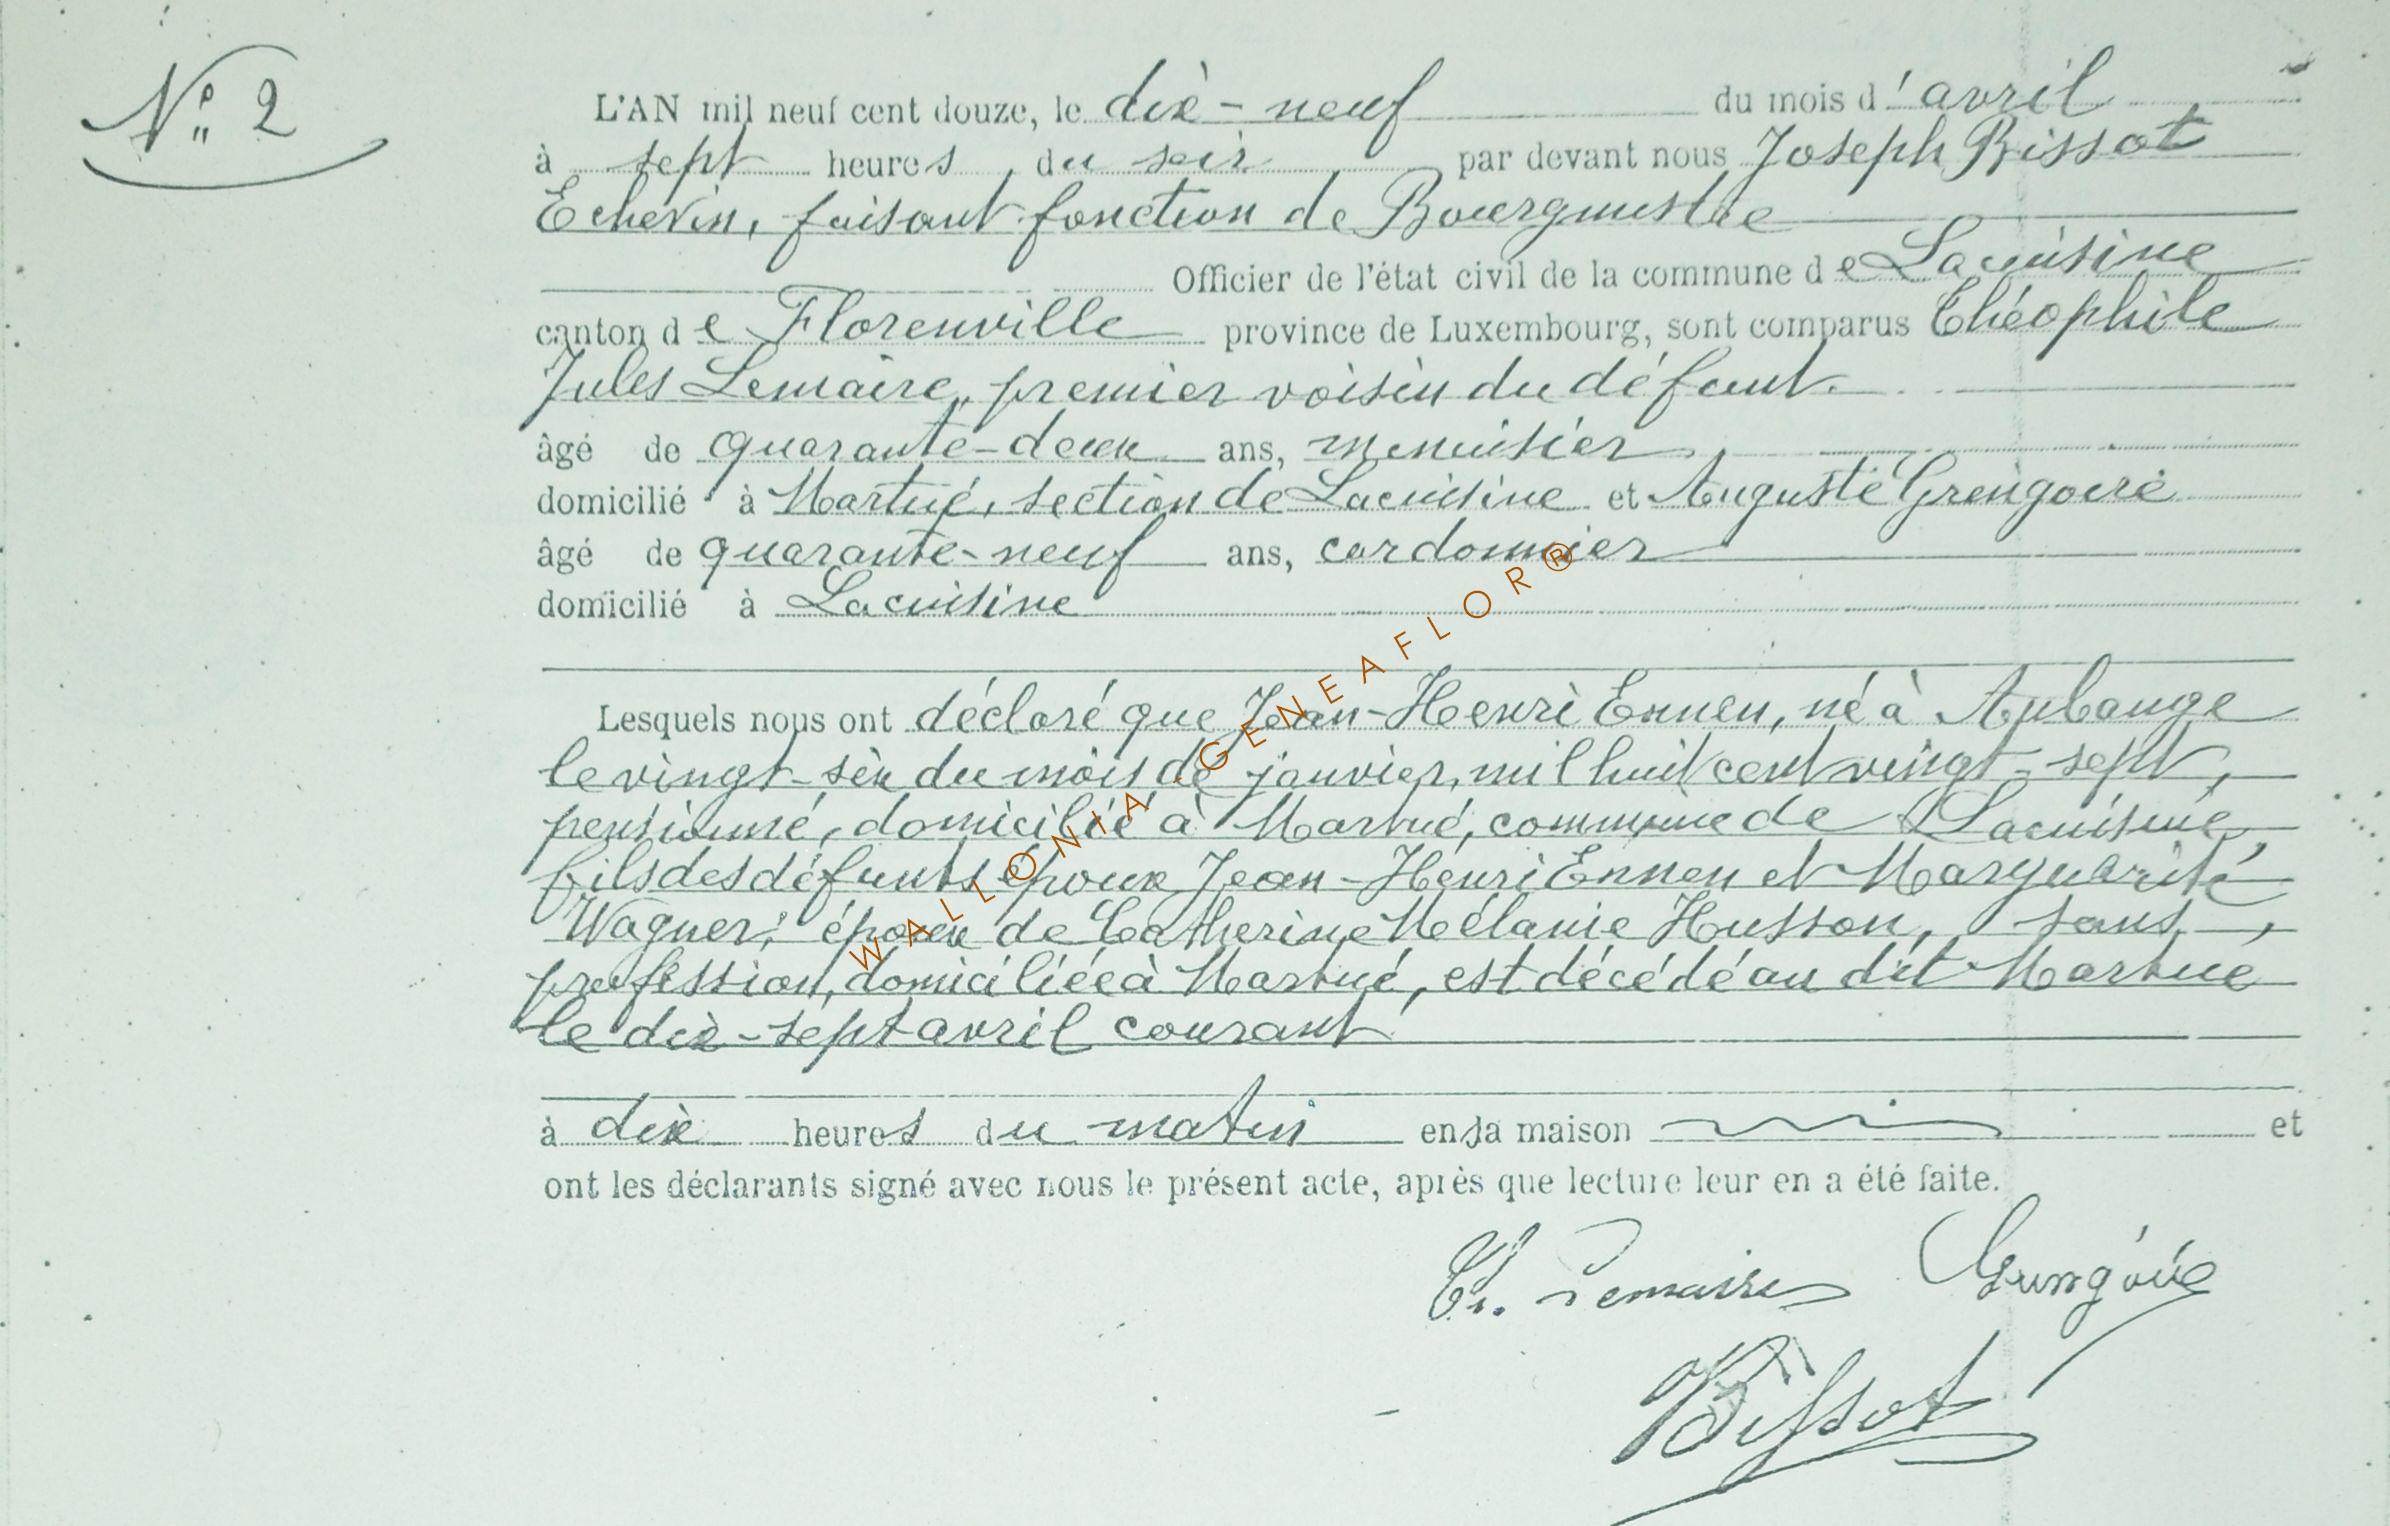 N° 2
L'AN mil neuf cent douze, le dix-neuf du mois d'avril
à sept heures du soir par devant nous Joseph Bissot
Echevin, faisant fonction de Bourgmestre
Officier de l'état civil de la commune de Lacuisine
canton de Florenville province de Luxembourg, sont comparus Théophile
Jules Lemaire, premier voisin du défunt.
âgé de quarante-deux ans, menuisier
domicilié à Martué, section de Lacuisine et Auguste Grengoire
âgé de quarante-neuf ans, cordonnier
domicilié à Lacuisine
Lesquels nous ont déclaré que Jean-Henri Ennen, né à Aubange
le vingt-six du mois de janvier, mil huit cent vingt-sept,
pensionné, domicilié à Martué, commune de Lacuisine,
fils des défunts époux Jean-Henri Ennen et Marguarité
Wagner; époux de Catherine Mélanie Husson, sans
profession, domiciliée à Martué, est décédé au dit Martué
le dix-sept avril courant
à dix heures du matin en sa maison et
ont les déclarants signé avec nous le présent acte, après que lecture leur en a été faite.
Th. Lemaire Grengoire
Bissot
WALLONIA . GENEAFLOR®